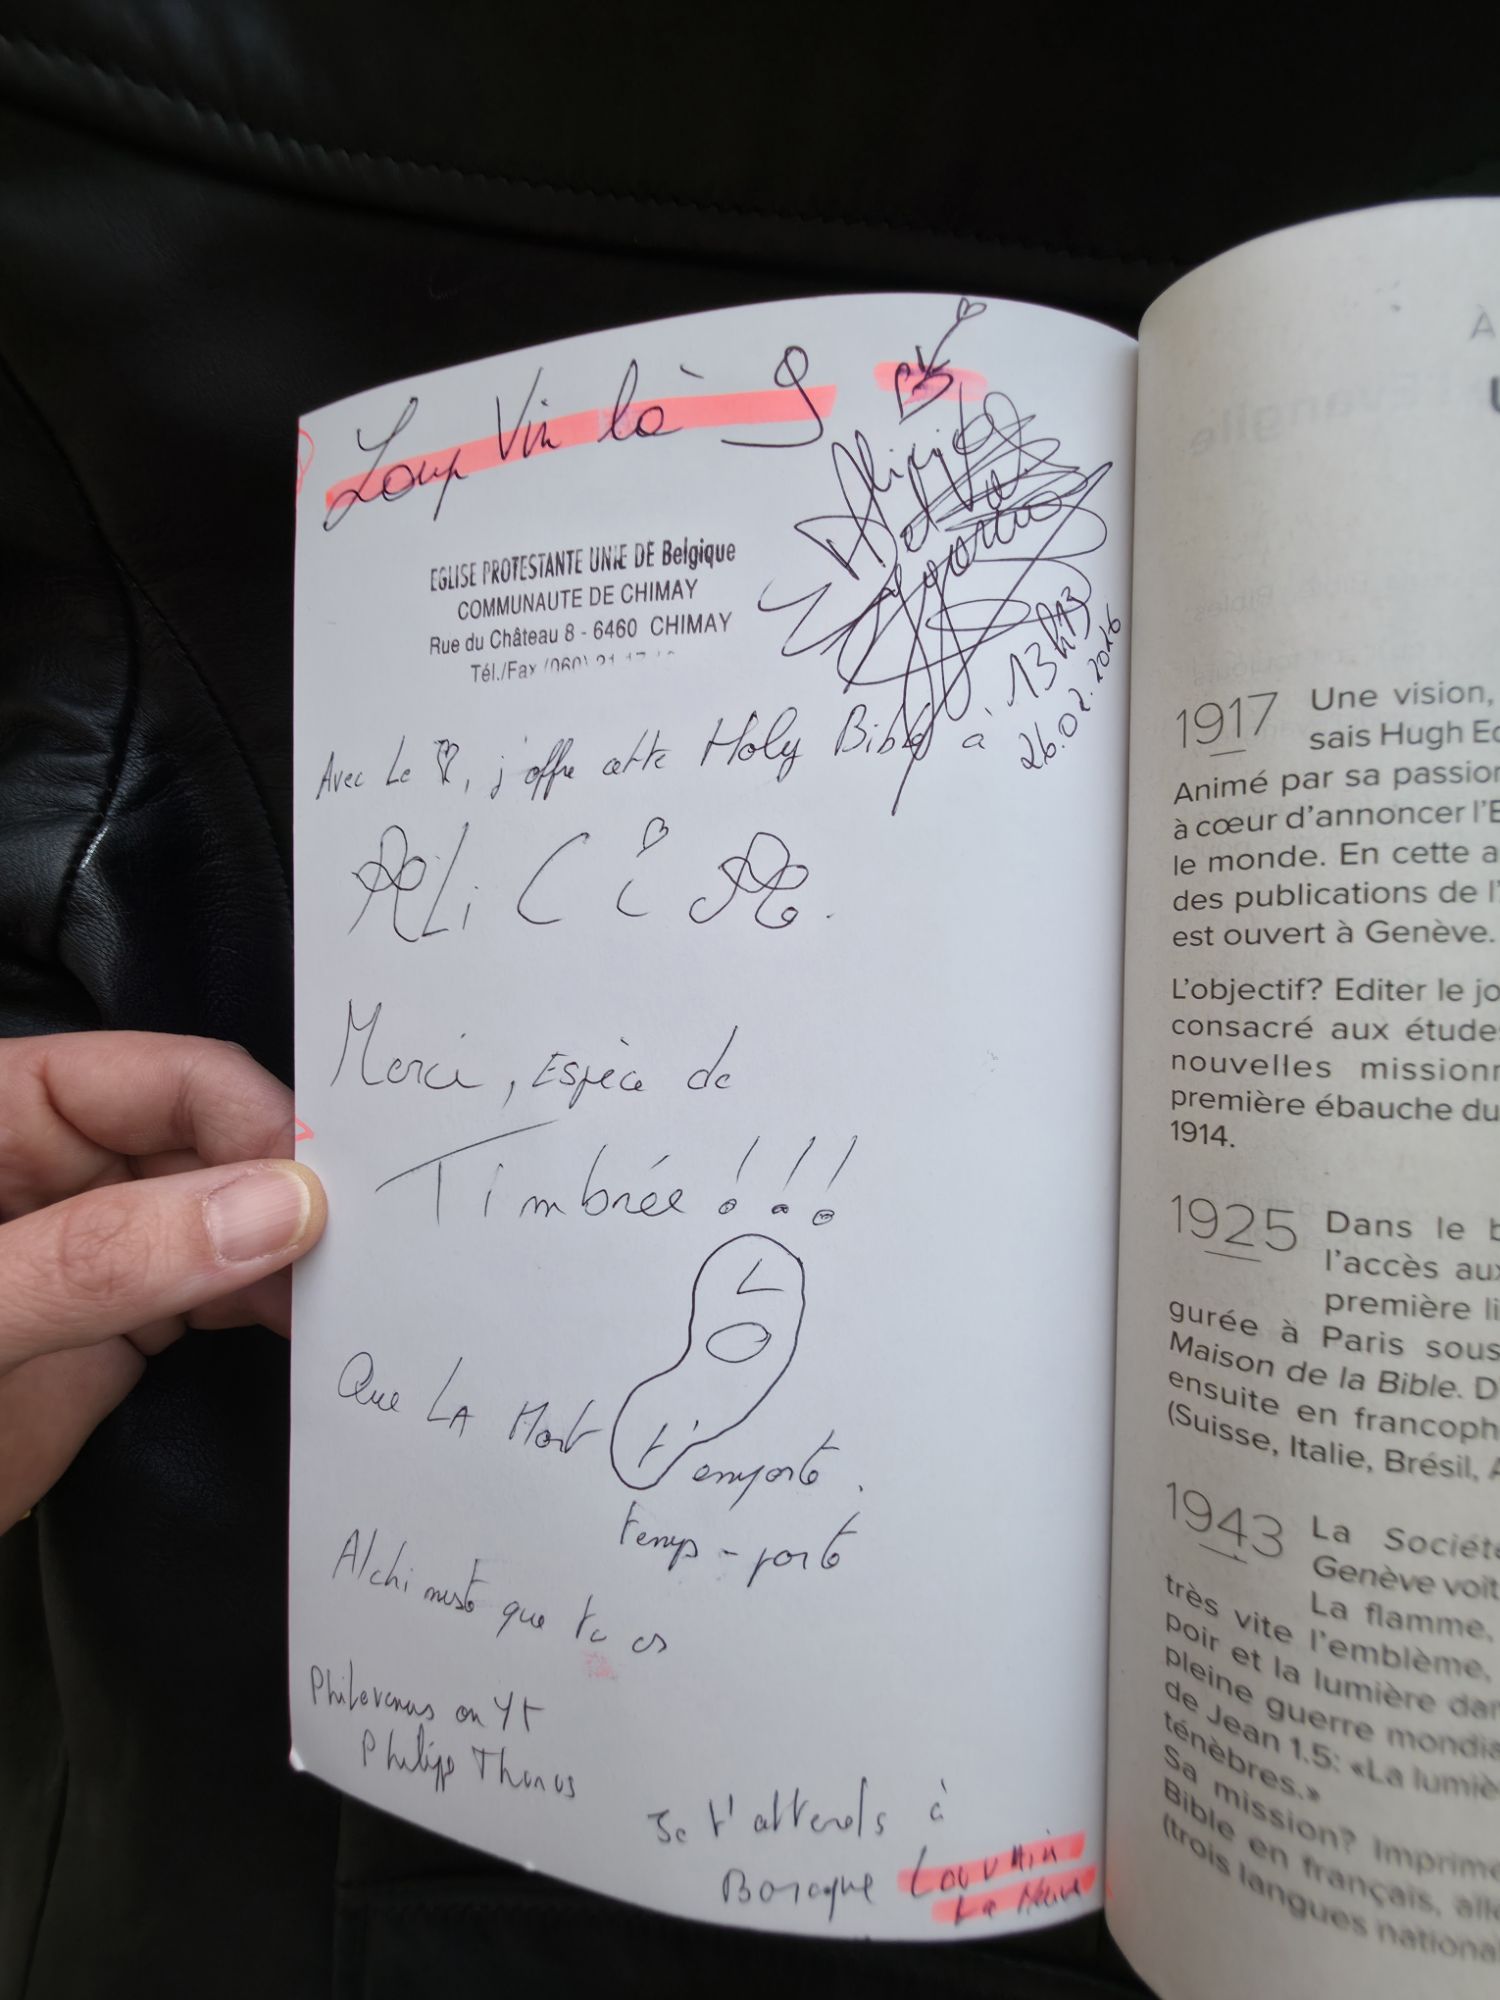 Loup Vin là 9
Alicia
del Val
EGLISE PROTESTANTE UNIE DE Belgique
COMMUNAUTE DE CHIMAY
Rue du Château 8 - 6460 CHIMAY
Tél./Fax (060) 21
13h13
26.02.2026
Avec Le ♡, j'offre cette Holy Bible à
ALiCiA.
Merci, Espèce de
Timbrée!!!
L
O
Que LA Mort t'emporte.
temps-porte
Alchimiste que tu es
Philevenus on Yt
Philipp Thonus
Je t'attends à
Baraque Louvain
La Neuve
À
U
1917 Une vision,
sais Hugh Ed
Animé par sa passion
à cœur d'annoncer l'E
le monde. En cette a
des publications de l'
est ouvert à Genève.
L'objectif? Editer le jo
consacré aux études
nouvelles missionn
première ébauche du
1914.
1925 Dans le b
l'accès aux
première li
gurée à Paris sous
Maison de la Bible. D
ensuite en francoph
(Suisse, Italie, Brésil, A
1943 La Société
Genève voit
La flamme,
très vite l'emblème,
poir et la lumière dan
pleine guerre mondia
de Jean 1.5: «La lumiè
ténèbres.»
Sa mission? Imprime
Bible en français, alle
(trois langues national